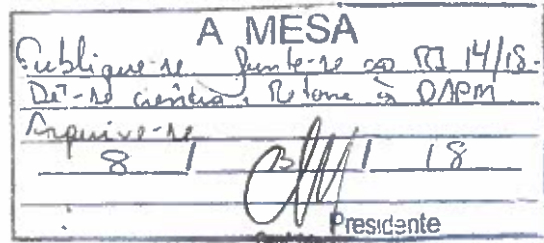 A MESA
Publique-se Junte-se ao RI 14/18.
Dê-se ciência. Retorne à DAPM
Arquive-se
8 / 3 / 18
Presidente